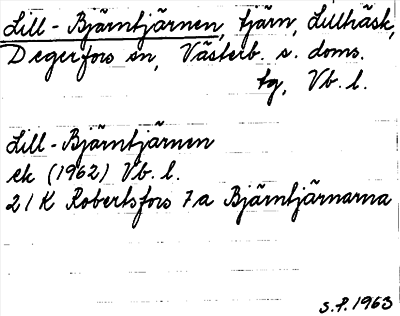 Lill-Bjärntjärnen, tjärn, Lillträsk,
Degerfors sn, Västerb. s. doms.
tg, Vb. l.
Lill-Bjärntjärnen
ek (1962) Vb. l.
21 K Robertsfors 7a Bjärntjärnarna
S.P. 1963